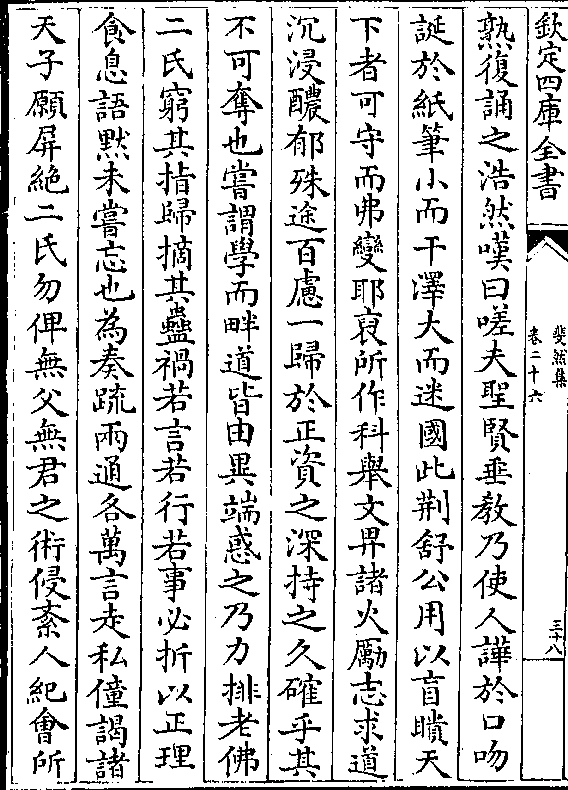 欽定四庫全書
斐然集
卷二十六
三十八
熟復誦之浩然嘆曰嗟夫聖賢垂教乃使人譁於口吻
誕於紙筆小而干澤大而迷國此荆舒公用以盲瞶天
下者可守而弗變耶裒所作科舉文畀諸火勵志求道
沉浸醲郁殊途百慮一歸於正資之深持之久確乎其
不可奪也嘗謂學而畔道皆由異端惑之乃力排老佛
二氏窮其指歸摘其蠱禍若言若行若事必折以正理
食息語黙未嘗忘也為奏疏兩通各萬言走私僮謁諸
天子願屏絶二氏勿俾無父無君之術侵紊人紀會所